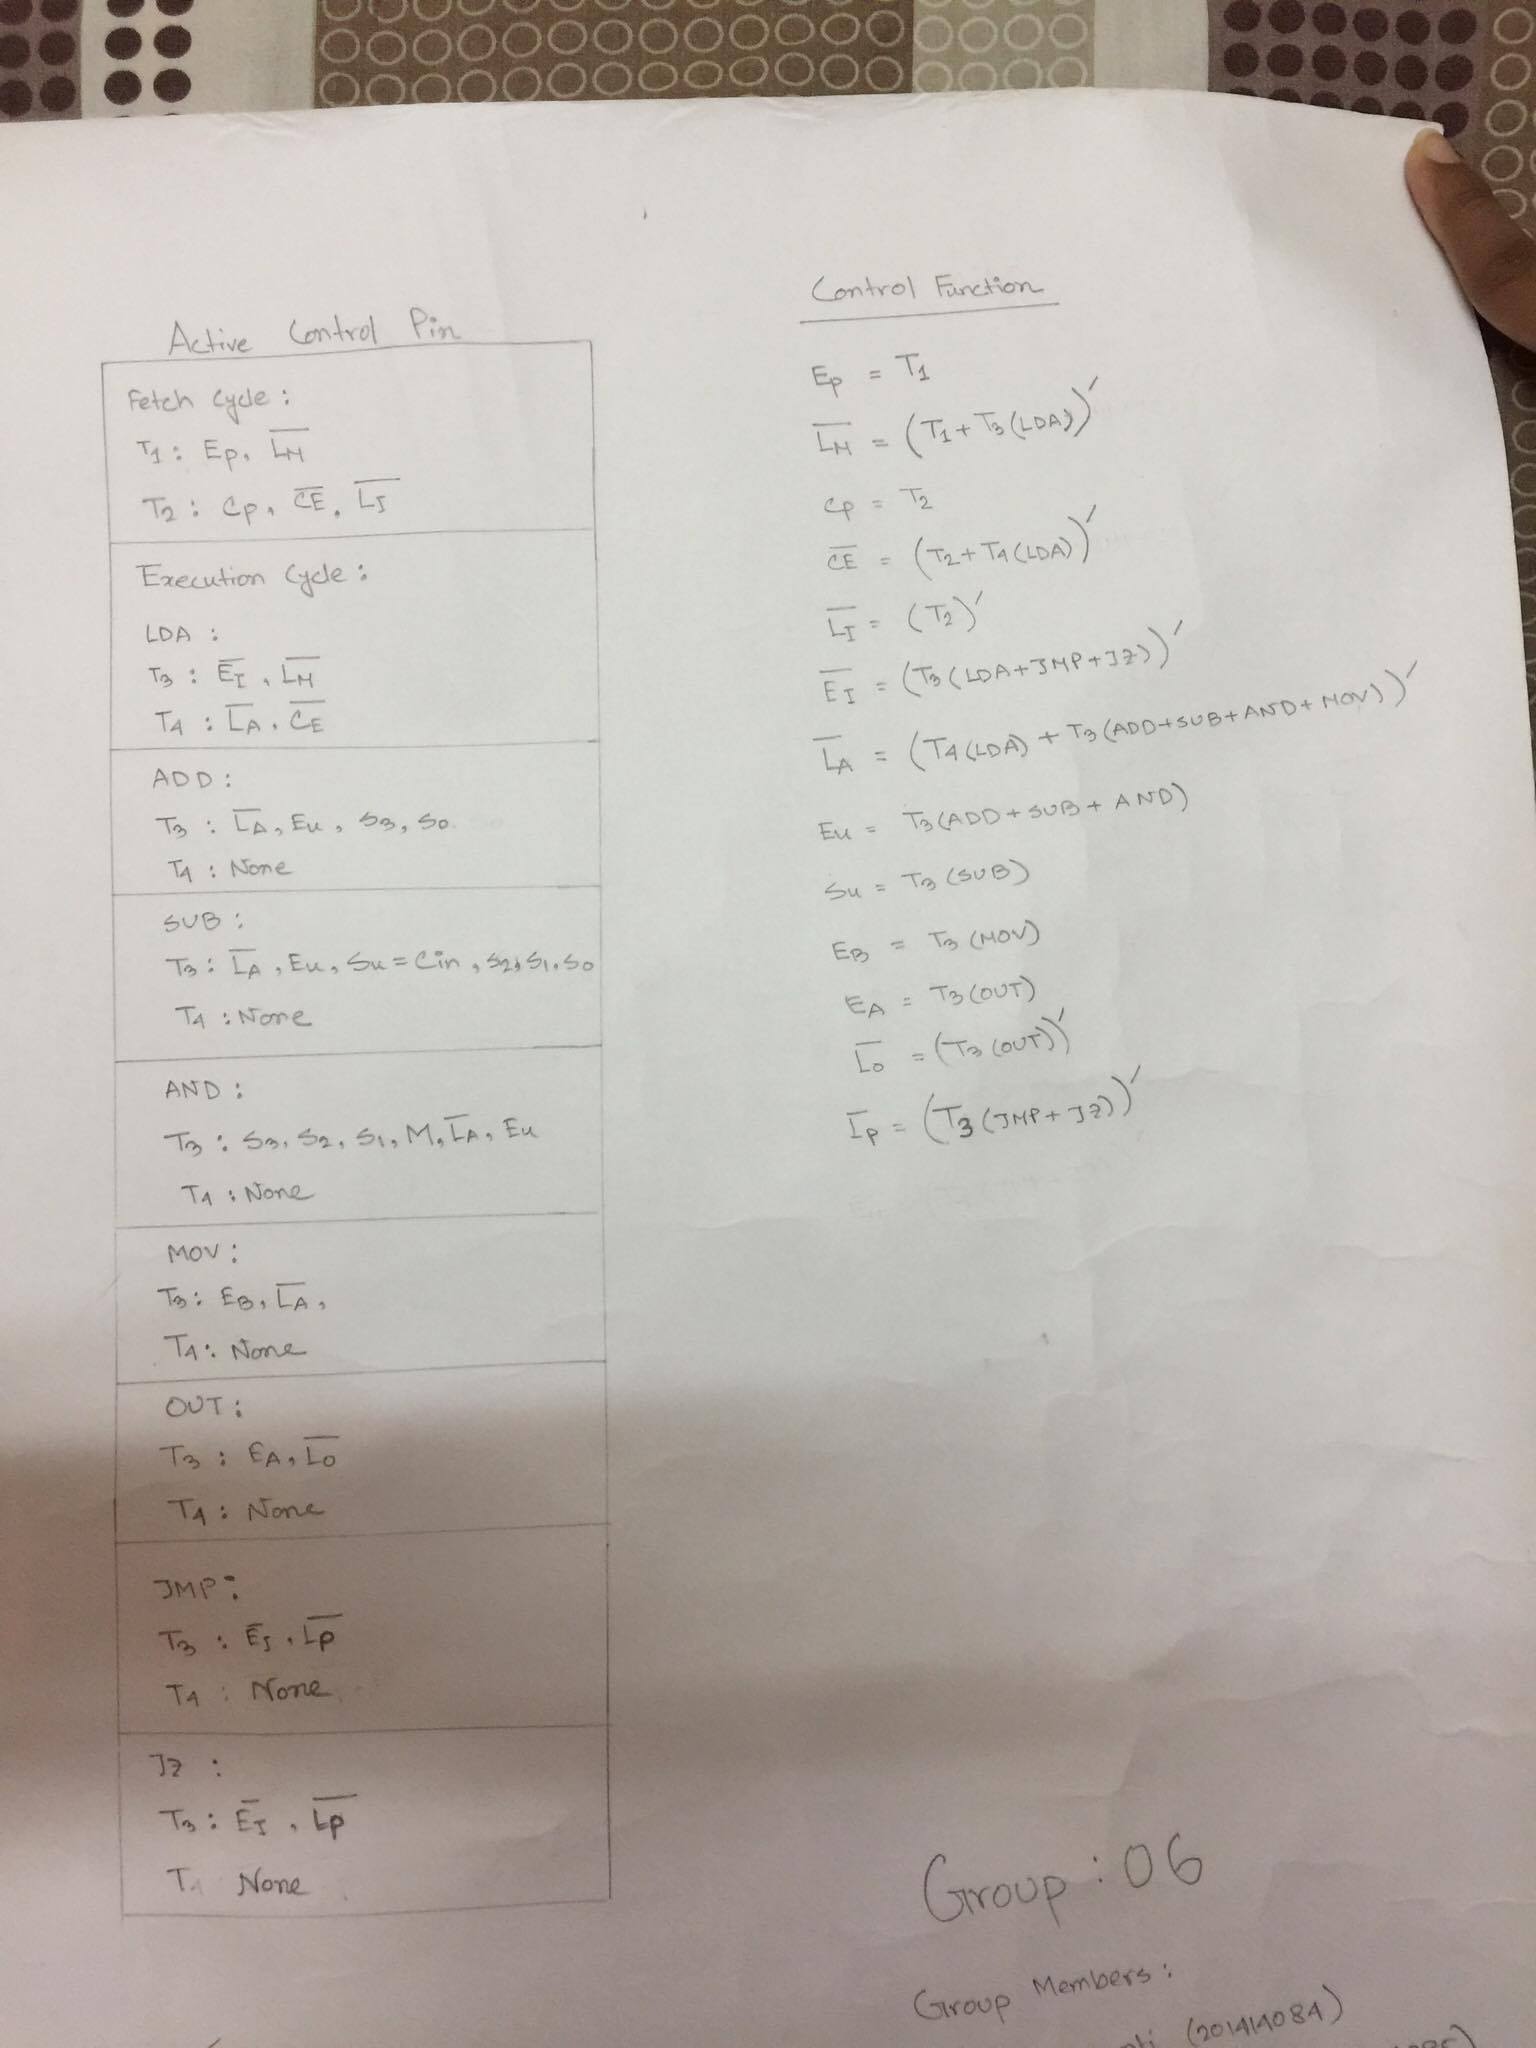 Active Control Pin
Fetch Cycle :
T1 : Ep, L̅M̅
T2 : Cp, C̅E̅, L̅I̅
Execution Cycle :
LDA :
T3 : E̅I̅, L̅M̅
T4 : L̅A̅, C̅E̅
ADD :
T3 : L̅A̅, Eu, S3, S0
T4 : None
SUB :
T3 : L̅A̅, Eu, Su = Cin, S2, S1, S0
T4 : None
AND :
T3 : S3, S2, S1, M, L̅A̅, Eu
T4 : None
MOV :
T3 : EB, L̅A̅,
T4 : None
OUT :
T3 : EA, L̅O̅
T4 : None
JMP :
T3 : E̅I̅, L̅P̅
T4 : None
JZ :
T3 : E̅I̅, L̅P̅
T4 None
Control Function
Ep = T1
L̅M̅ = (T1 + T3 (LDA))′
Cp = T2
C̅E̅ = (T2 + T4 (LDA))′
L̅I̅ = (T2)′
E̅I̅ = (T3 (LDA + JMP + JZ))′
L̅A̅ = (T4 (LDA) + T3 (ADD + SUB + AND + MOV))′
Eu = T3 (ADD + SUB + AND)
Su = T3 (SUB)
EB = T3 (MOV)
EA = T3 (OUT)
L̅O̅ = (T3 (OUT))′
L̅P̅ = (T3 (JMP + JZ))′
Group : 06
Group Members :
(201414084)